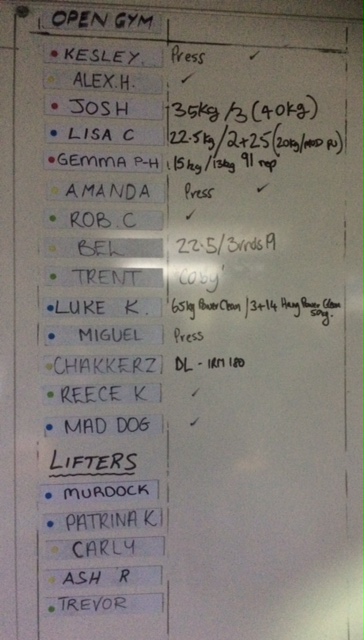 OPEN GYM
KESLEY. Press ✓
ALEX.H. ✓
JOSH 35kg/3 (40kg)
LISA C 22.5kg/2+25 (20kg/MOD PU)
GEMMA P-H 15kg/13kg 91 rep
AMANDA Press ✓
ROB.C ✓
BEL 22.5/3rnds
TRENT 'Coby'
LUKE K. 65kg Power Clean /3+14 Hang Power Clean 50kg.
MIGUEL Press
CHAKKERZ DL - 1RM 180
REECE K ✓
MAD DOG ✓
LIFTERS
MURDOCK
PATRINA K
CARLY
ASH R
TREVOR